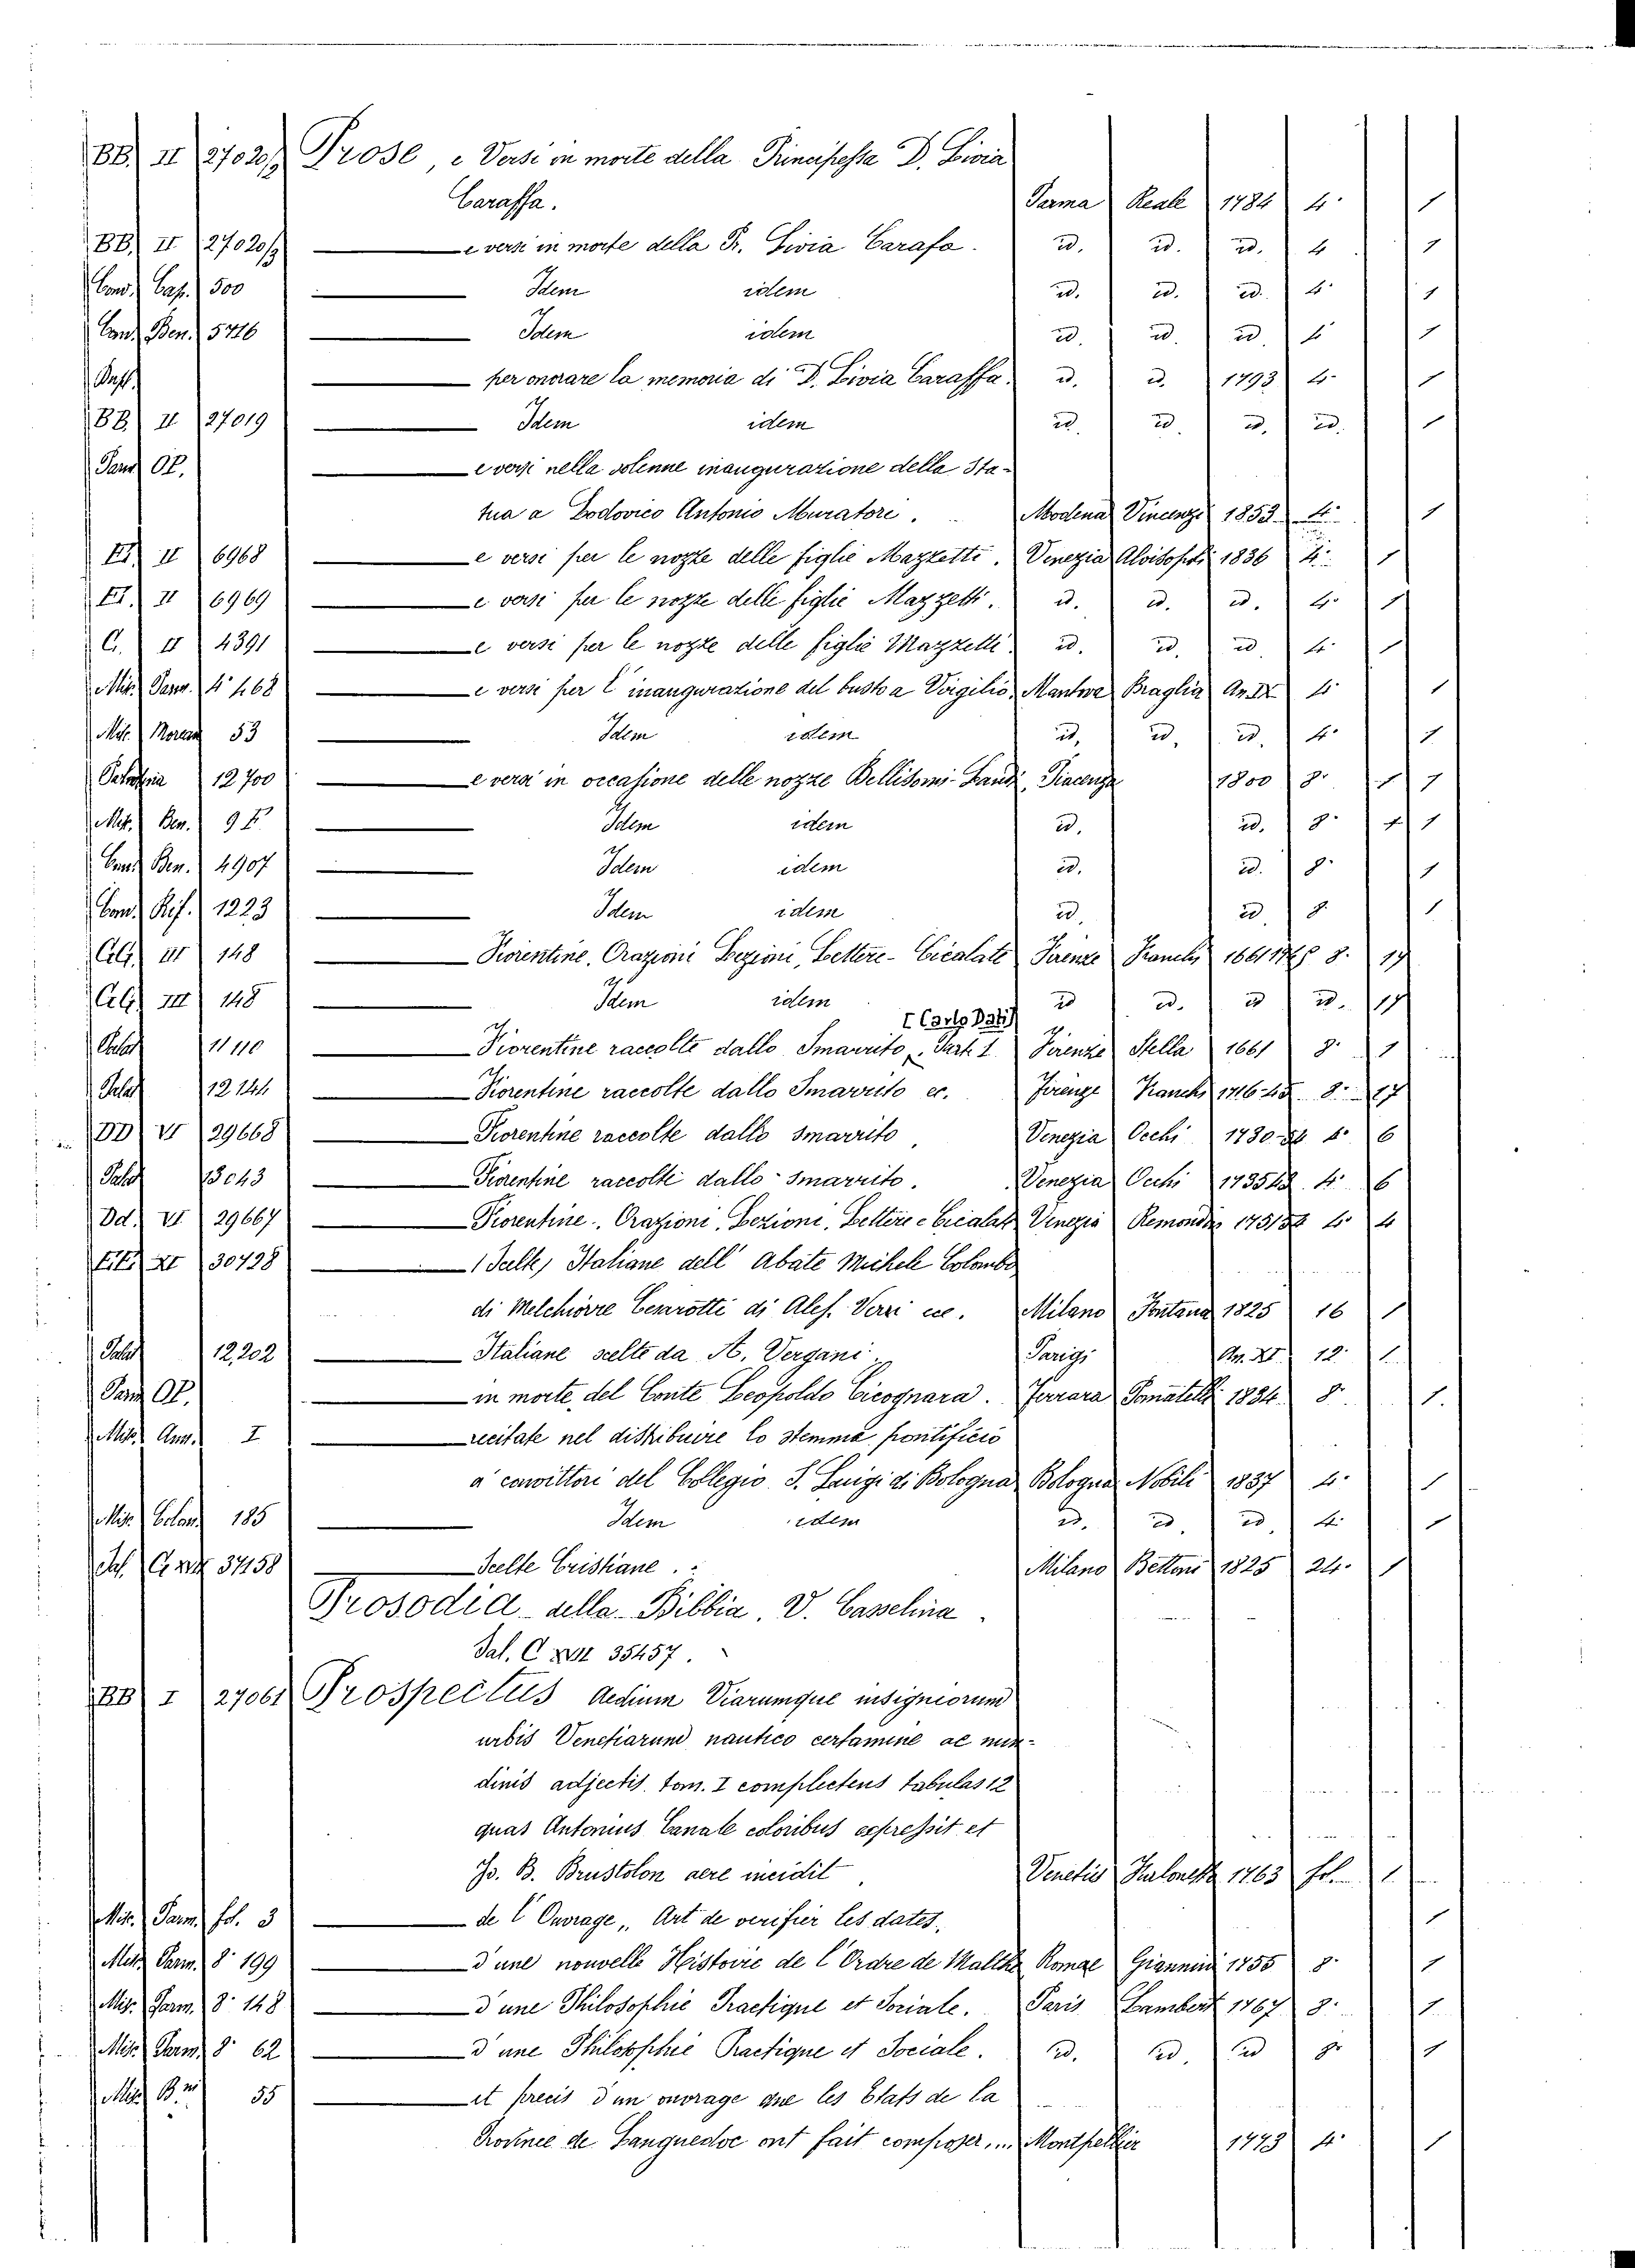 BB. II 27020/1 Prose, e Versi in morte della Principessa D. Livia
Caraffa. Parma Reale 1784 4° 1
BB. II 27020/2 — e versi in morte della Pr. Livia Carafa. id. id. id. 4 1
Cond. Cap. 500 — Idem idem id. id. id. 4° 1
Cond. Ben. 5716 — Idem idem id. id. id. 4 1
— per onorare la memoria di D. Livia Caraffa. id. id. 1793 4° 1
BB. II 27019 — Idem idem id. id. id. id. 1
OP. — e versi nella solenne inaugurazione della Sta-
tua a Lodovico Antonio Muratori. Modena Vincenzi 1853 4° 1
II 6968 — e versi per le nozze delle figlie Mazzetti. Venezia Alvisopoli 1836 4° 1
II 6969 — e versi per le nozze delle figlie Mazzetti. id. id. id. 4° 1
G. II 4391 — e versi per le nozze delle figlie Mazzetti. id. id. id. 4° 1
Mis. Parm. 4° 468 — e versi per l'inaugurazione del busto a Virgilio, Mantova Braglia An. IX 4° 1
Mis. Moreau 53 — Idem idem id. id. id. 4° 1
Palatina 12700 — e versi in occasione delle nozze Bellisomi-Landi, Piacenza 1800 8° 1 1
Mis. Ben. 9 — Idem idem id. id. 8° 1 1
Cond. Ben. 4907 — Idem idem id. id. 8° 1
Cond. Rif. 1223 — Idem idem id. id. 8. 1
III 148 — Fiorentine, Orazioni Lezioni, Lettere-Cicalate Firenze Franchi 1661 8. 17
III 148 — Idem idem id id. id id. 17
[Carlo Dati]
Palat 11110 — Fiorentine raccolte dallo Smarrito, Part. 1 Firenze Stella 1661 8° 1
Palat 12144 — Fiorentine raccolte dallo Smarrito ec. Firenze Franchi 1716-45 8° 17
DD VI 29668 — Fiorentine raccolte dallo smarrito, Venezia Occhi 1730- 4° 6
Palat 13043 — Fiorentine raccolte dallo Smarrito. Venezia Occhi 1735 4° 6
Dd. VI 29667 — Fiorentine, Orazioni, Lezioni, Lettere e Cicalate Venezia Remondini 1751 4° 4
XI 30798 — (Scelte) Italiane dell'Abate Michele Colombo
di Melchiorre Cesarotti di Ales. Verri ec. Milano Fontana 1825 16 1
Palat 12,202 — Italiane scelte da A. Vergani. Parigi An. XI. 12° 1
OP. — in morte del Conte Leopoldo Cicognara. Ferrara Pomatelli 1834 8° 1.
Mis. Ann. I — recitate nel distribuire lo stemma pontificio
a' convittori del Collegio S. Luigi di Bologna Bologna Nobili 1837 4° 1
Mis. Colom 185 — Idem idem id. id. id. 4° 1
37158 — Scelte Cristiane. Milano Bettoni 1825 24° 1
Prosodia della Bibbia. V. Casselina.
Sal. C XVII 35457.
BB I 27061 Prospectus Aedium Viarumque insigniorum
urbis Venetiarum nautico certamine ac nun-
dinis adjectis. tom. I complectens tabulas 12
quas Antonius Canale coloribus expressit et
Jo. B. Brustolon aere incidit, Venetiis Furlonetti 1763 fol. 1
Mis. Parm. fol. 3 — de l'Ouvrage,, Art de verifier les dates. 1
Mis. Parm. 8° 199 — d'une nouvelle Histoire de l'Ordre de Malthe Romae Giannini 1755 8° 1
Mis. Parm. 8° 148 — d'une Philosophie Practique et Sociale. Paris Lambert 1767 8° 1
Mis. Parm. 8° 62 — d'une Philosophie Practique et Sociale. id. id. id 8° 1
Mis. B. 55 — et precis d'un ouvrage que les Etats de la
Province de Languedoc ont fait composer,... Montpellier 1773 4° 1